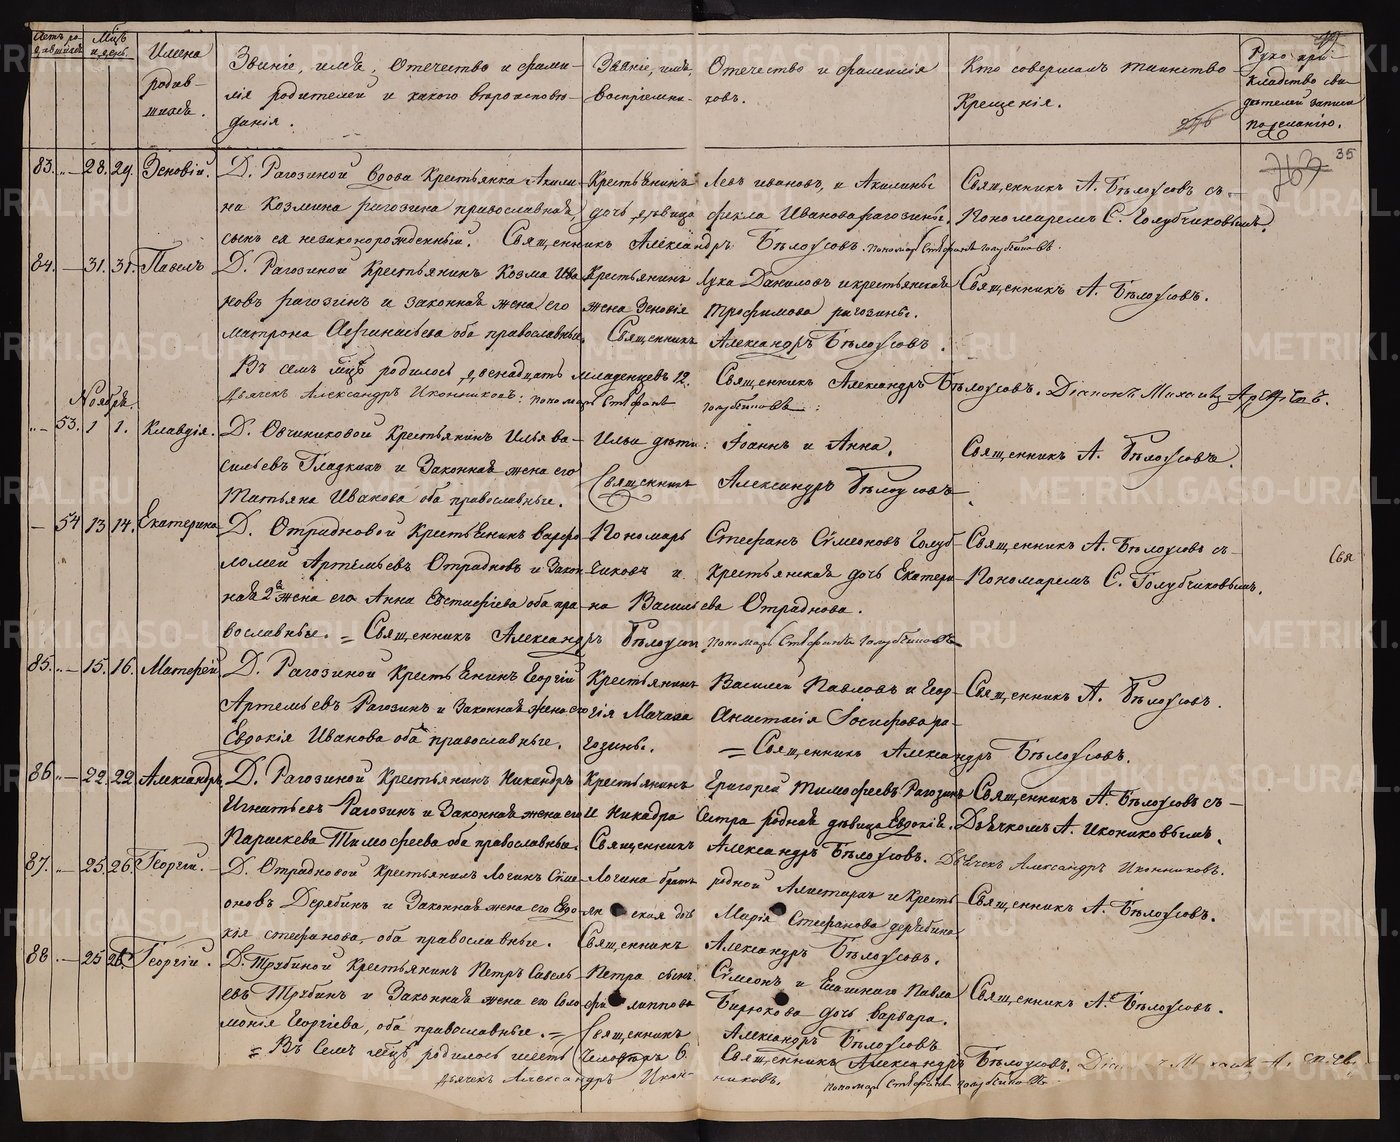 Имена родив-шихся.
Званіе, имя, Отечество и фами-
лія родителей и какого вѣроисповѣ-
данія.
Званіе, имя, Отечество и фамилія
воспріемни- ковъ.
Кто совершалъ таинство
Крещенія.
Руко при-
кладство сви-
дѣтелей записи
по желанію.
35
83. 28. 29. Зеновій. Д. Рагозиной вдова Крестьянка Акили- Крестьянинъ Левъ Ивановъ, и Акилины Священникъ А. Бѣлоусовъ съ
на Козмина рагозина православная, дочь дѣвица Фекла Иванова рагозины. Пономаремъ С. Голубчиковымъ.
сынъ ея незаконорожденный. Священникъ Александръ Бѣлоусовъ. пономарь Стефанъ Голубчиковъ.
84. 31. 31. Павелъ Д. Рагозиной Крестьянинъ Козма Ива- Крестьянинъ Лука Даниловъ и крестьянская Священникъ А. Бѣлоусовъ.
новъ рагозинъ и законная жена его жена Зеновія Трофимова рагозины.
матрона оба православные. Священникъ Александръ Бѣлоусовъ.
Въ семъ мцѣ родилось двенадцать младенцевъ 12. Священникъ Александръ Бѣлоусовъ. Діаконъ Михаилъ
Дьячекъ Александръ Иконниковъ: пономарь Стефанъ Голубчиковъ:
Ноябрь.
53. 1 1. Клавдія. Д. Овчиниковой Крестьянинъ Илья Ва- Ильи дѣти: Іоаннъ и Анна. Священникъ А. Бѣлоусовъ.
сильевъ Гладкихъ и Законная жена его Священникъ Александръ Бѣлоусовъ
Татьяна Иванова оба православные.
54 13 14. Екатерина Д. Отрадновой Крестьянинъ Варфо- Пономарь Стефанъ Сѵмеоновъ Голуб- Священникъ А. Бѣлоусовъ съ
ломей Артемьевъ Отрадновъ и Закон- чиковъ и Крестьянская дочь Екатери- Пономаремъ С. Голубчиковымъ.
ная 2я жена его Анна Евстафіева оба пра- на Васильева Отраднова.
вославные. = Священникъ Александръ Бѣлоусовъ Пономарь Стефанъ Голубчиковъ
Свя
85. 15. 16. Матфей Д. Рагозиной Крестьянинъ Георгій Крестьянинъ Василей Павловъ и Геор- Священникъ А. Бѣлоусовъ.
Артемьевъ Рагозинъ и Законная жена его гія Мачиха Анастасія Іосифова ра-
Евдокія Иванова оба православные. гозины. = Священникъ Александръ Бѣлоусовъ.
86 22. 22 Александръ, Д. Рагозиной Крестьянинъ Никандръ Крестьянинъ Григорей Тимофеевъ Рагозинъ Священникъ А. Бѣлоусовъ съ
Игнатьевъ Рагозинъ и Законная жена его и Никадра Сестра родная дѣвица Евдокія. Дьячкомъ А. Икониковымъ.
Параскева Тимофеева оба православны. Священникъ Александръ Бѣлоусовъ. Дьячекъ Александръ Иконниковъ.
87. 25. 26. Георгій. Д. Отрадновой Крестьянинъ Логинъ Сѵме- Логина братъ родной и Кресть- Священникъ А. Бѣлоусовъ.
оновъ Дерябинъ и Законная жена его Евдо- ян ская дочь Марія Стефанова дерябина
кія стефанова, оба православные. Священникъ Александръ Бѣлоусовъ.
88. 25 26. Георгій. Д. Трубиной Крестьянинъ Петръ Савель- Петра сынъ Сѵмеонъ и Павла Священникъ А. Бѣлоусовъ.
евъ Трубинъ и Законная жена его Соло- фи липпова Бирюкова дочь варвара.
монія Георгіева, оба православные. = Священникъ Александръ Бѣлоусовъ
= Въ Семъ мцѣ родилось шесть Человѣкъ 6. Священникъ Александръ Бѣлоусовъ.
Дьячекъ Александръ Икон- никовъ. пономарь Стефанъ Голубчиковъ
METRIKI.GASO-URAL.RU